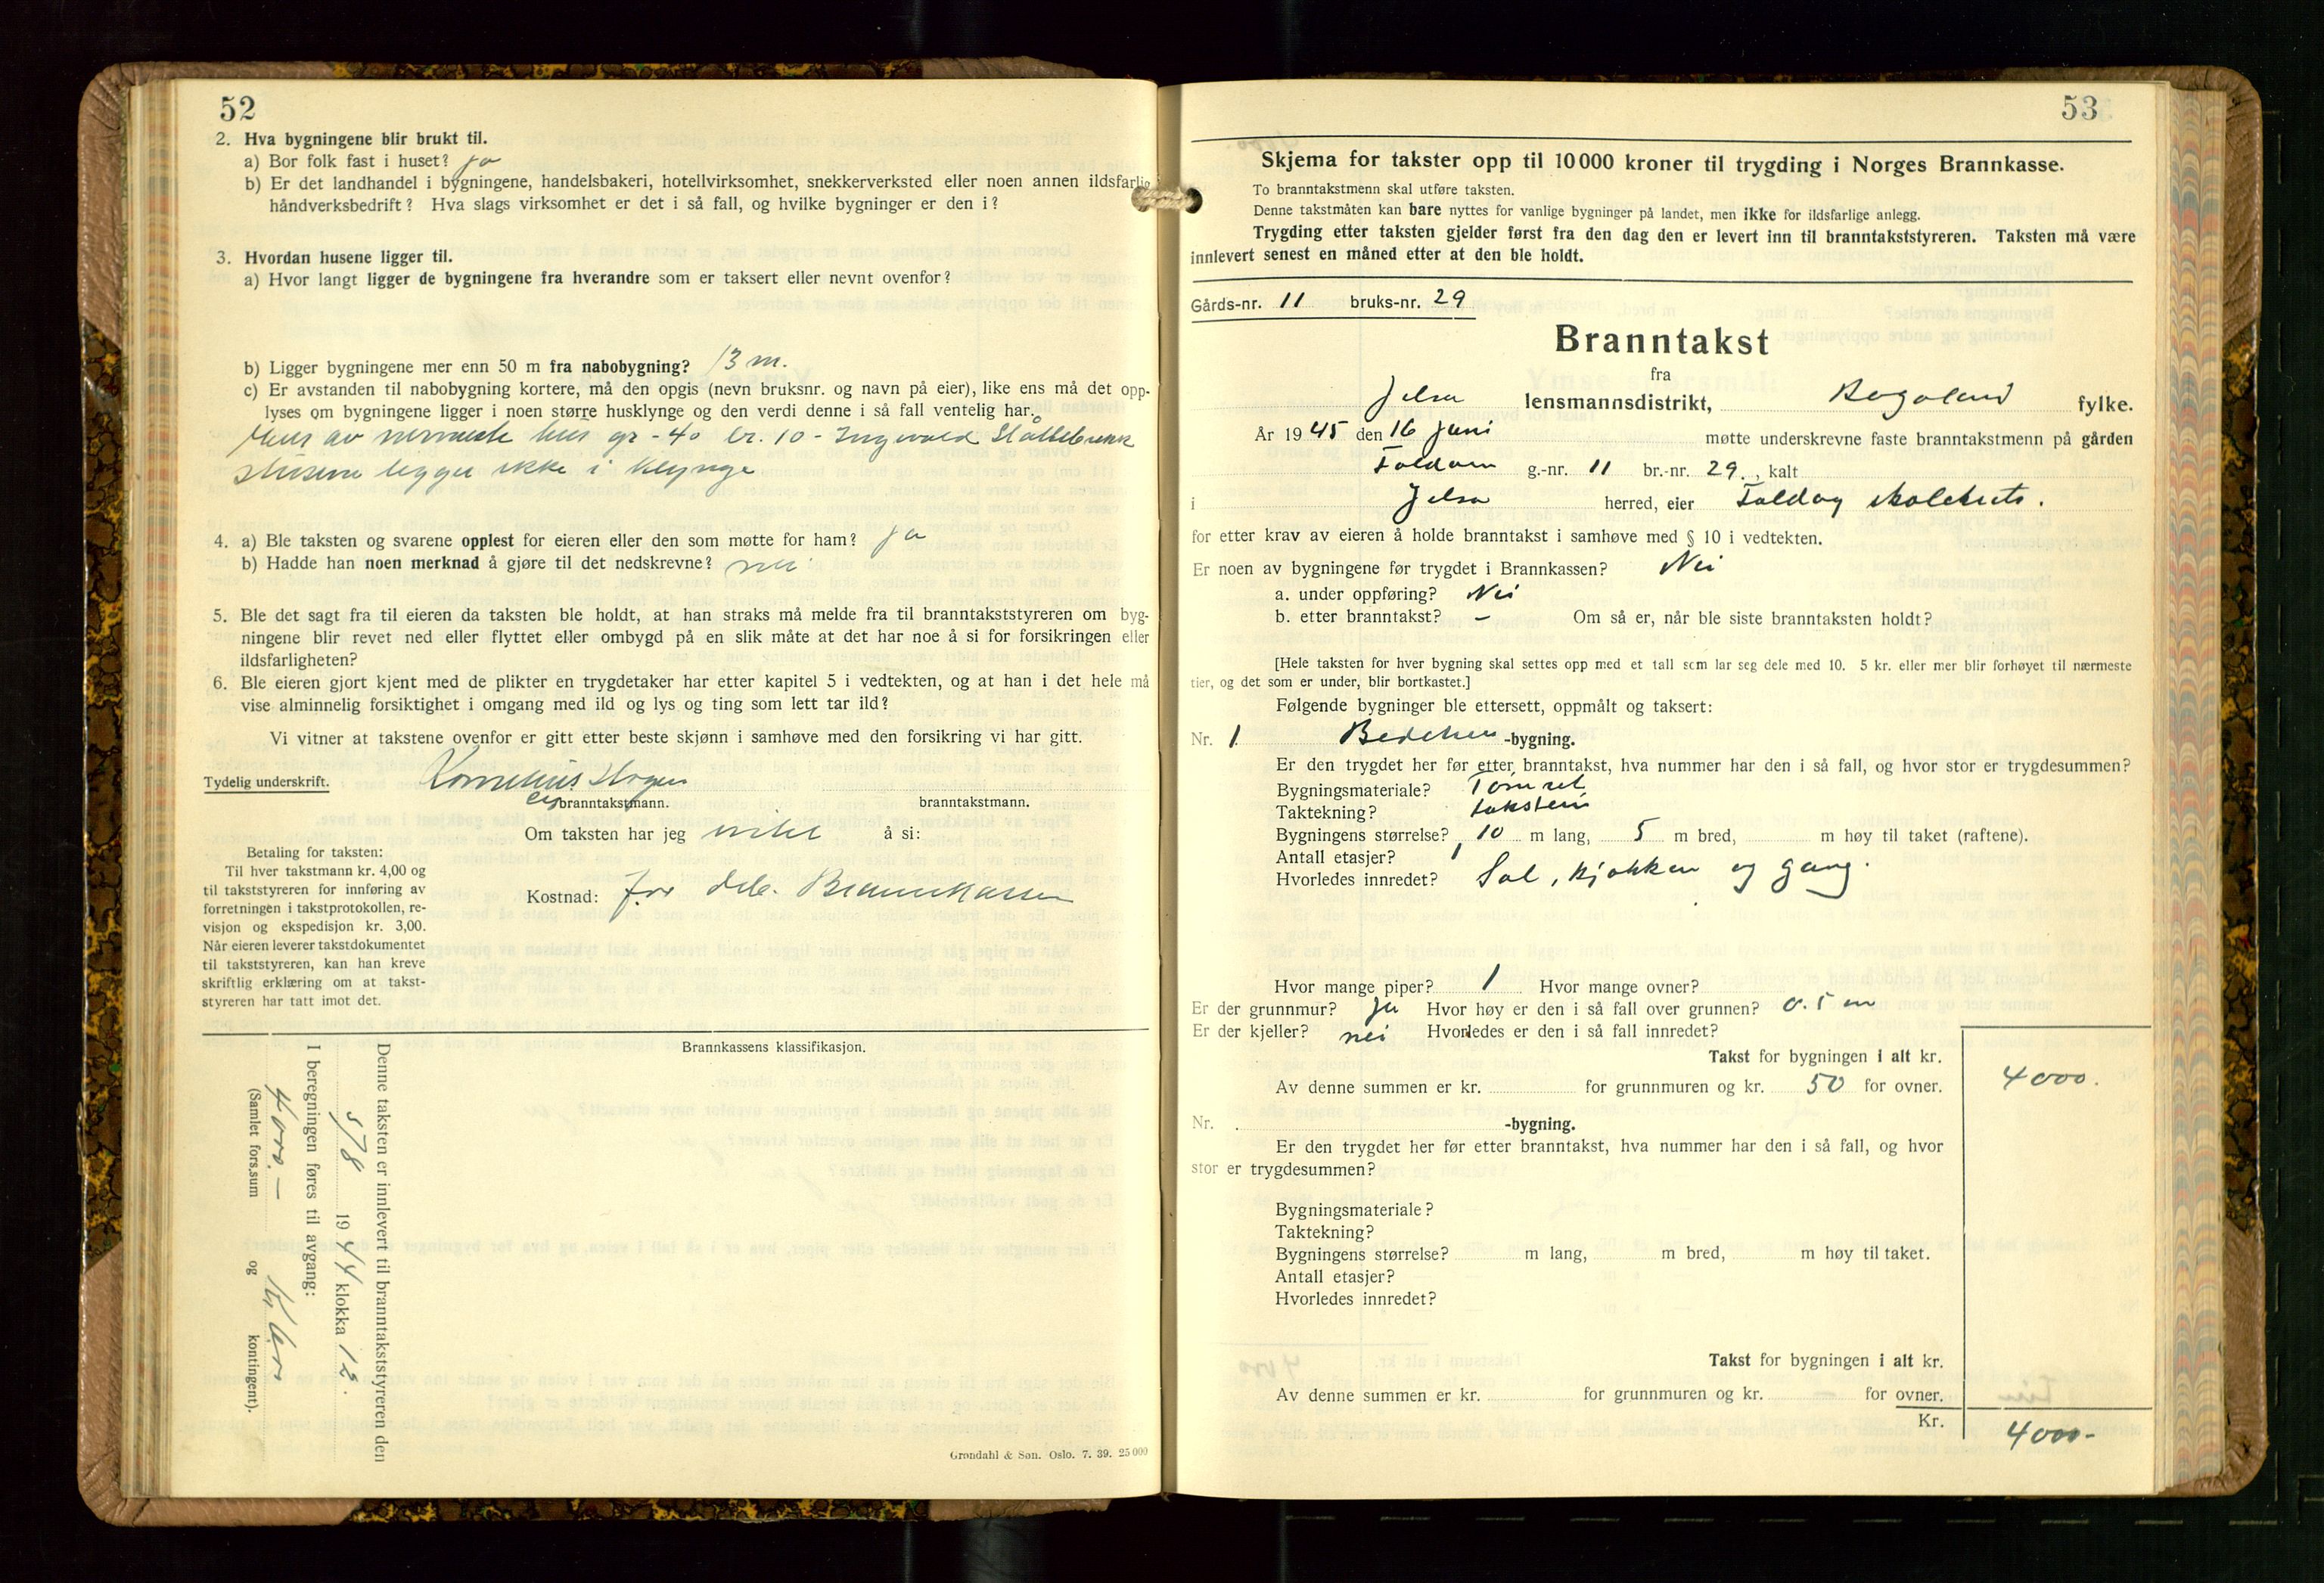 52
2. Hva bygningene blir brukt til.
a) Bor folk fast i huset? ja
b) Er det landhandel i bygningene, handelsbakeri, hotellvirksomhet, snekkerverksted eller noen annen ildsfarlig
håndverksbedrift? Hva slags virksomhet er det i så fall, og hvilke bygninger er den i?
3. Hvordan husene ligger til.
a) Hvor langt ligger de bygningene fra hverandre som er taksert eller nevnt ovenfor?
b) Ligger bygningene mer enn 50 m fra nabobygning? 13 m.
c) Er avstanden til nabobygning kortere, må den opgis (nevn bruksnr. og navn på eier), like ens må det opp-
lyses om bygningene ligger i noen større husklynge og den verdi denne i så fall ventelig har.
av nermeste hus gr - 40 br. 10 - Ingvald
Husene ligger ikke i klynge
4. a) Ble taksten og svarene opplest for eieren eller den som møtte for ham? ja
b) Hadde han noen merknad å gjøre til det nedskrevne? nei
5. Ble det sagt fra til eieren da taksten ble holdt, at han straks må melde fra til branntakststyreren om byg-
ningene blir revet ned eller flyttet eller ombygd på en slik måte at det har noe å si for forsikringen eller
ildsfarligheten?
6. Ble eieren gjort kjent med de plikter en trygdetaker har etter kapitel 5 i vedtekten, og at han i det hele må
vise alminnelig forsiktighet i omgang med ild og lys og ting som lett tar ild?
Vi vitner at takstene ovenfor er gitt etter beste skjønn i samhøve med den forsikring vi har gitt.
Tydelig underskrift. Kornelius Hagen
branntakstmann. branntakstmann.
Om taksten har jeg intet å si:
Betaling for taksten:
Til hver takstmann kr. 4,00 og
til takststyreren for innføring av
forretningen i takstprotokollen, re-
visjon og ekspedisjon kr. 3,00.
Når eieren leverer takstdokumentet
til takststyreren, kan han kreve
skriftlig erklæring om at takst-
styreren har tatt imot det.
Kostnad: for Brannkassen
Brannkassens klassifikasjon.
Denne taksten er innlevert til branntakststyreren den
5/8 1944 klokka 12.
I beregningen føres til avgang:
4000.- og
(Samlet fors.sum kontingent).
Grøndahl & Søn. Oslo. 7. 39. 25 000
53
Skjema for takster opp til 10 000 kroner til trygding i Norges Brannkasse.
To branntakstmenn skal utføre taksten.
Denne takstmåten kan bare nyttes for vanlige bygninger på landet, men ikke for ildsfarlige anlegg.
Trygding etter taksten gjelder først fra den dag den er levert inn til branntakststyreren. Taksten må være
innlevert senest en måned etter at den ble holdt.
Gårds-nr. 11 bruks-nr. 29
Branntakst
fra
Jelsa lensmannsdistrikt, Rogaland fylke.
År 1945 den 16 juni møtte underskrevne faste branntakstmenn på gården
Foldøen g.-nr. 11 br.-nr. 29., kalt
i Jelsa herred, eier Foldøy skolekrets.
for etter krav av eieren å holde branntakst i samhøve med § 10 i vedtekten.
Er noen av bygningene før trygdet i Brannkassen? Nei
a. under oppføring? Nei
b. etter branntakst? – Om så er, når ble siste branntaksten holdt?
[Hele taksten for hver bygning skal settes opp med et tall som lar seg dele med 10. 5 kr. eller mer blir forhøyet til nærmeste
tier, og det som er under, blir bortkastet.]
Følgende bygninger ble ettersett, oppmålt og taksert:
Nr. 1. Bedehus-bygning.
Er den trygdet her før etter branntakst, hva nummer har den i så fall, og hvor stor er trygdesummen?
Bygningsmateriale? Tømret
Taktekning? takstein
Bygningens størrelse? 10 m lang, 5 m bred, m høy til taket (raftene).
Antall etasjer? 1
Hvorledes innredet? Sal, kjøkken og gang.
Hvor mange piper? 1 Hvor mange ovner?
Er der grunnmur? ja Hvor høy er den i så fall over grunnen? 0.5 m
Er der kjeller? nei Hvorledes er den i så fall innredet?
Takst for bygningen i alt kr. 4000.
Av denne summen er kr. for grunnmuren og kr. 50 for ovner.
Nr. -bygning.
Er den trygdet her før etter branntakst, hva nummer har den i så fall, og hvor
stor er trygdesummen?
Bygningsmateriale?
Taktekning?
Bygningens størrelse? m lang, m bred, m høy til taket.
Antall etasjer?
Hvorledes innredet?
Takst for bygningen i alt kr.
Av denne summen er kr. for grunnmuren og kr. for ovner.
Kr. 4000-